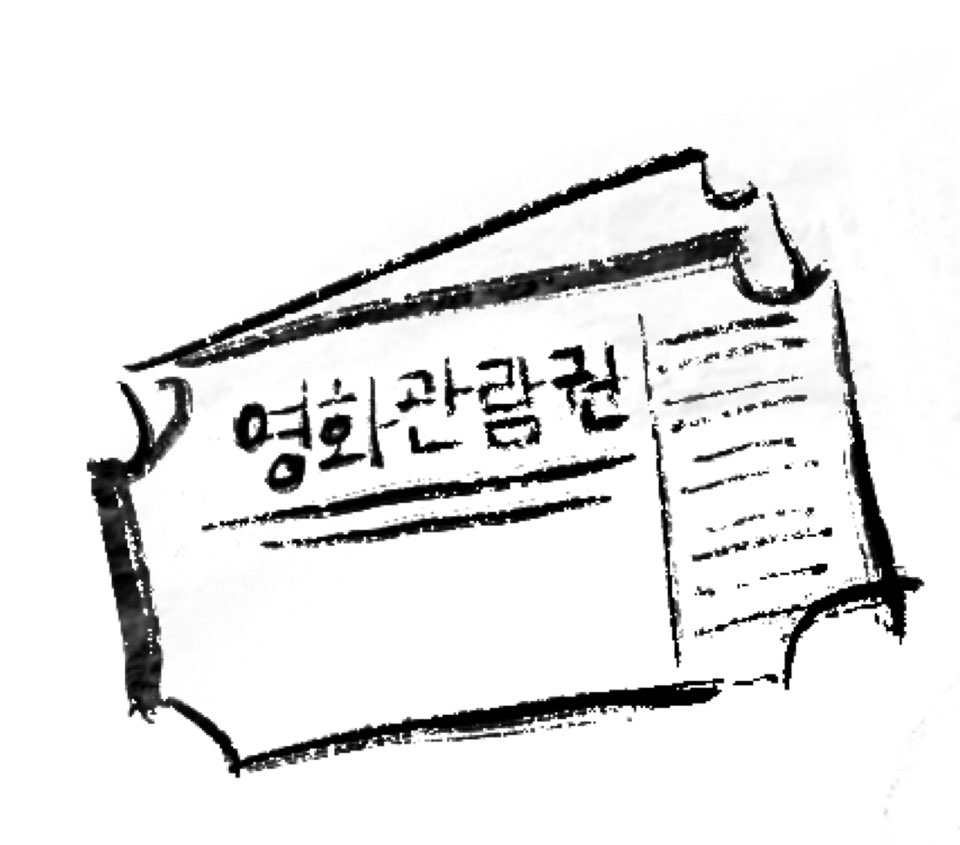 영화관람권